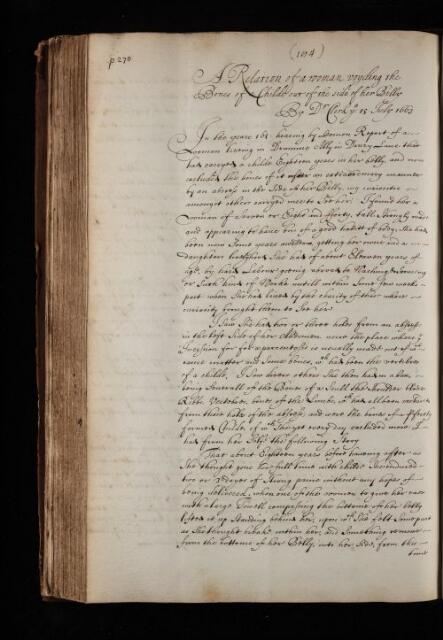 p 270
(1014)
A Relation of a woman voyding the
Bones of a Childe out of the side of her Belly
By Dr Cork 15 July 1663
In the yeare 16 hearing by Common Report of a
Woman liveing in Drummer Ally in Drury Lane that
had carryed a childe Eighteen years in her belly and now
excluded the bones of it after an extraordinary manner
by an abscess in the Side of her Belly, my curiositie
amongst others carryed mee to See her. I found her a
woman of Seaven or Eight and thirty, tall Strongly made
and appearing to have been of a good habitt of body, She had
been now Some years widdow, getting her owne and a
daughters livelyhood She had of about Eleaven years of
age, by hard Labour going abroad to Washing & Scowring
or Such kind of Worke untill within Some few weeks
past when She had lived by the charity of those whose
curiosity brought them to See her
I Saw She had two or three holes from an abscesse
in the left Side of her Abdomen neere the place where
Incision for is usually made out of wch
came matter and Some bones, wch had been the vertebræ
of a childe. I Saw divers others She then had in a box
being Severall of the Bones of a Scull the Shoulder blade
Ribbs Vertebræ, bones of the Limbs, wch had all been voided
from these holes of the abscess, and were the bones of a
formed Childe, of wch She yet everyday excluded more. I
had from her Selfe the following Story
That about Eighteen years before haveing after as
She thought gone her full time with childe She endured
two or 3 dayes of Strong paine without any hopes of
being delivered, when one of the women to give her ease
with a large Towell compassing the bottome of her belly
lifted it up Standing behind her, upon wch She felt Some part
as She thought break within her, and Something remove
from the bottome of her Belly, into her Side, from this
time